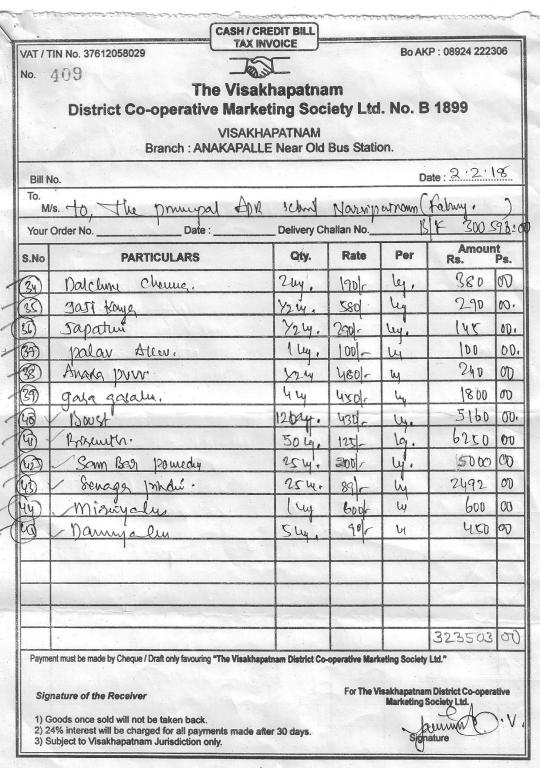 CASH / CREDIT BILL
TAX INVOICE
VAT / TIN No. 37612058029
Bo AKP : 08924 222306
No. 409
The Visakhapatnam
District Co-operative Marketing Society Ltd. No. B 1899
VISAKHAPATNAM
Branch : ANAKAPALLE Near Old Bus Station.
Bill No.
Date : 2.2.18
To.
M/s. to, The principal APR School Narsipatnam
Your Order No. Date : Delivery Challan No. B/F 300598=00
S.No PARTICULARS Qty. Rate Per Amount
Rs. Ps.
34 Dalchina Chenna. 2 kg. 190/- kg. 380 00
35 1/2 kg. 580/- kg 290 00.
36 Japatri 1/2 kg. 290/- kg. 145 00.
37 palav 1 kg 100/- kg 100 00.
38 1/2 kg 480/- kg 240 00
39 gasa gasalu. 4 kg 450/- kg 1800 00
40 Boust 12 kg. 430/- kg. 5160 00.
41 50 kg. 125/- kg. 6250 00
42 Sam Bar 25 kg. 200/- kg. 5000 00
43 Senaga 25 kg. 89/- kg 2492 00
44 1 kg 600/- kg 600 00
45 5 kg. 90/- kg 450 00
323503 00
Payment must be made by Cheque / Draft only favouring "The Visakhapatnam District Co-operative Marketing Society Ltd."
Signature of the Receiver
For The Visakhapatnam District Co-operative
Marketing Society Ltd.
1) Goods once sold will not be taken back.
2) 24% interest will be charged for all payments made after 30 days.
3) Subject to Visakhapatnam Jurisdiction only.
Signature